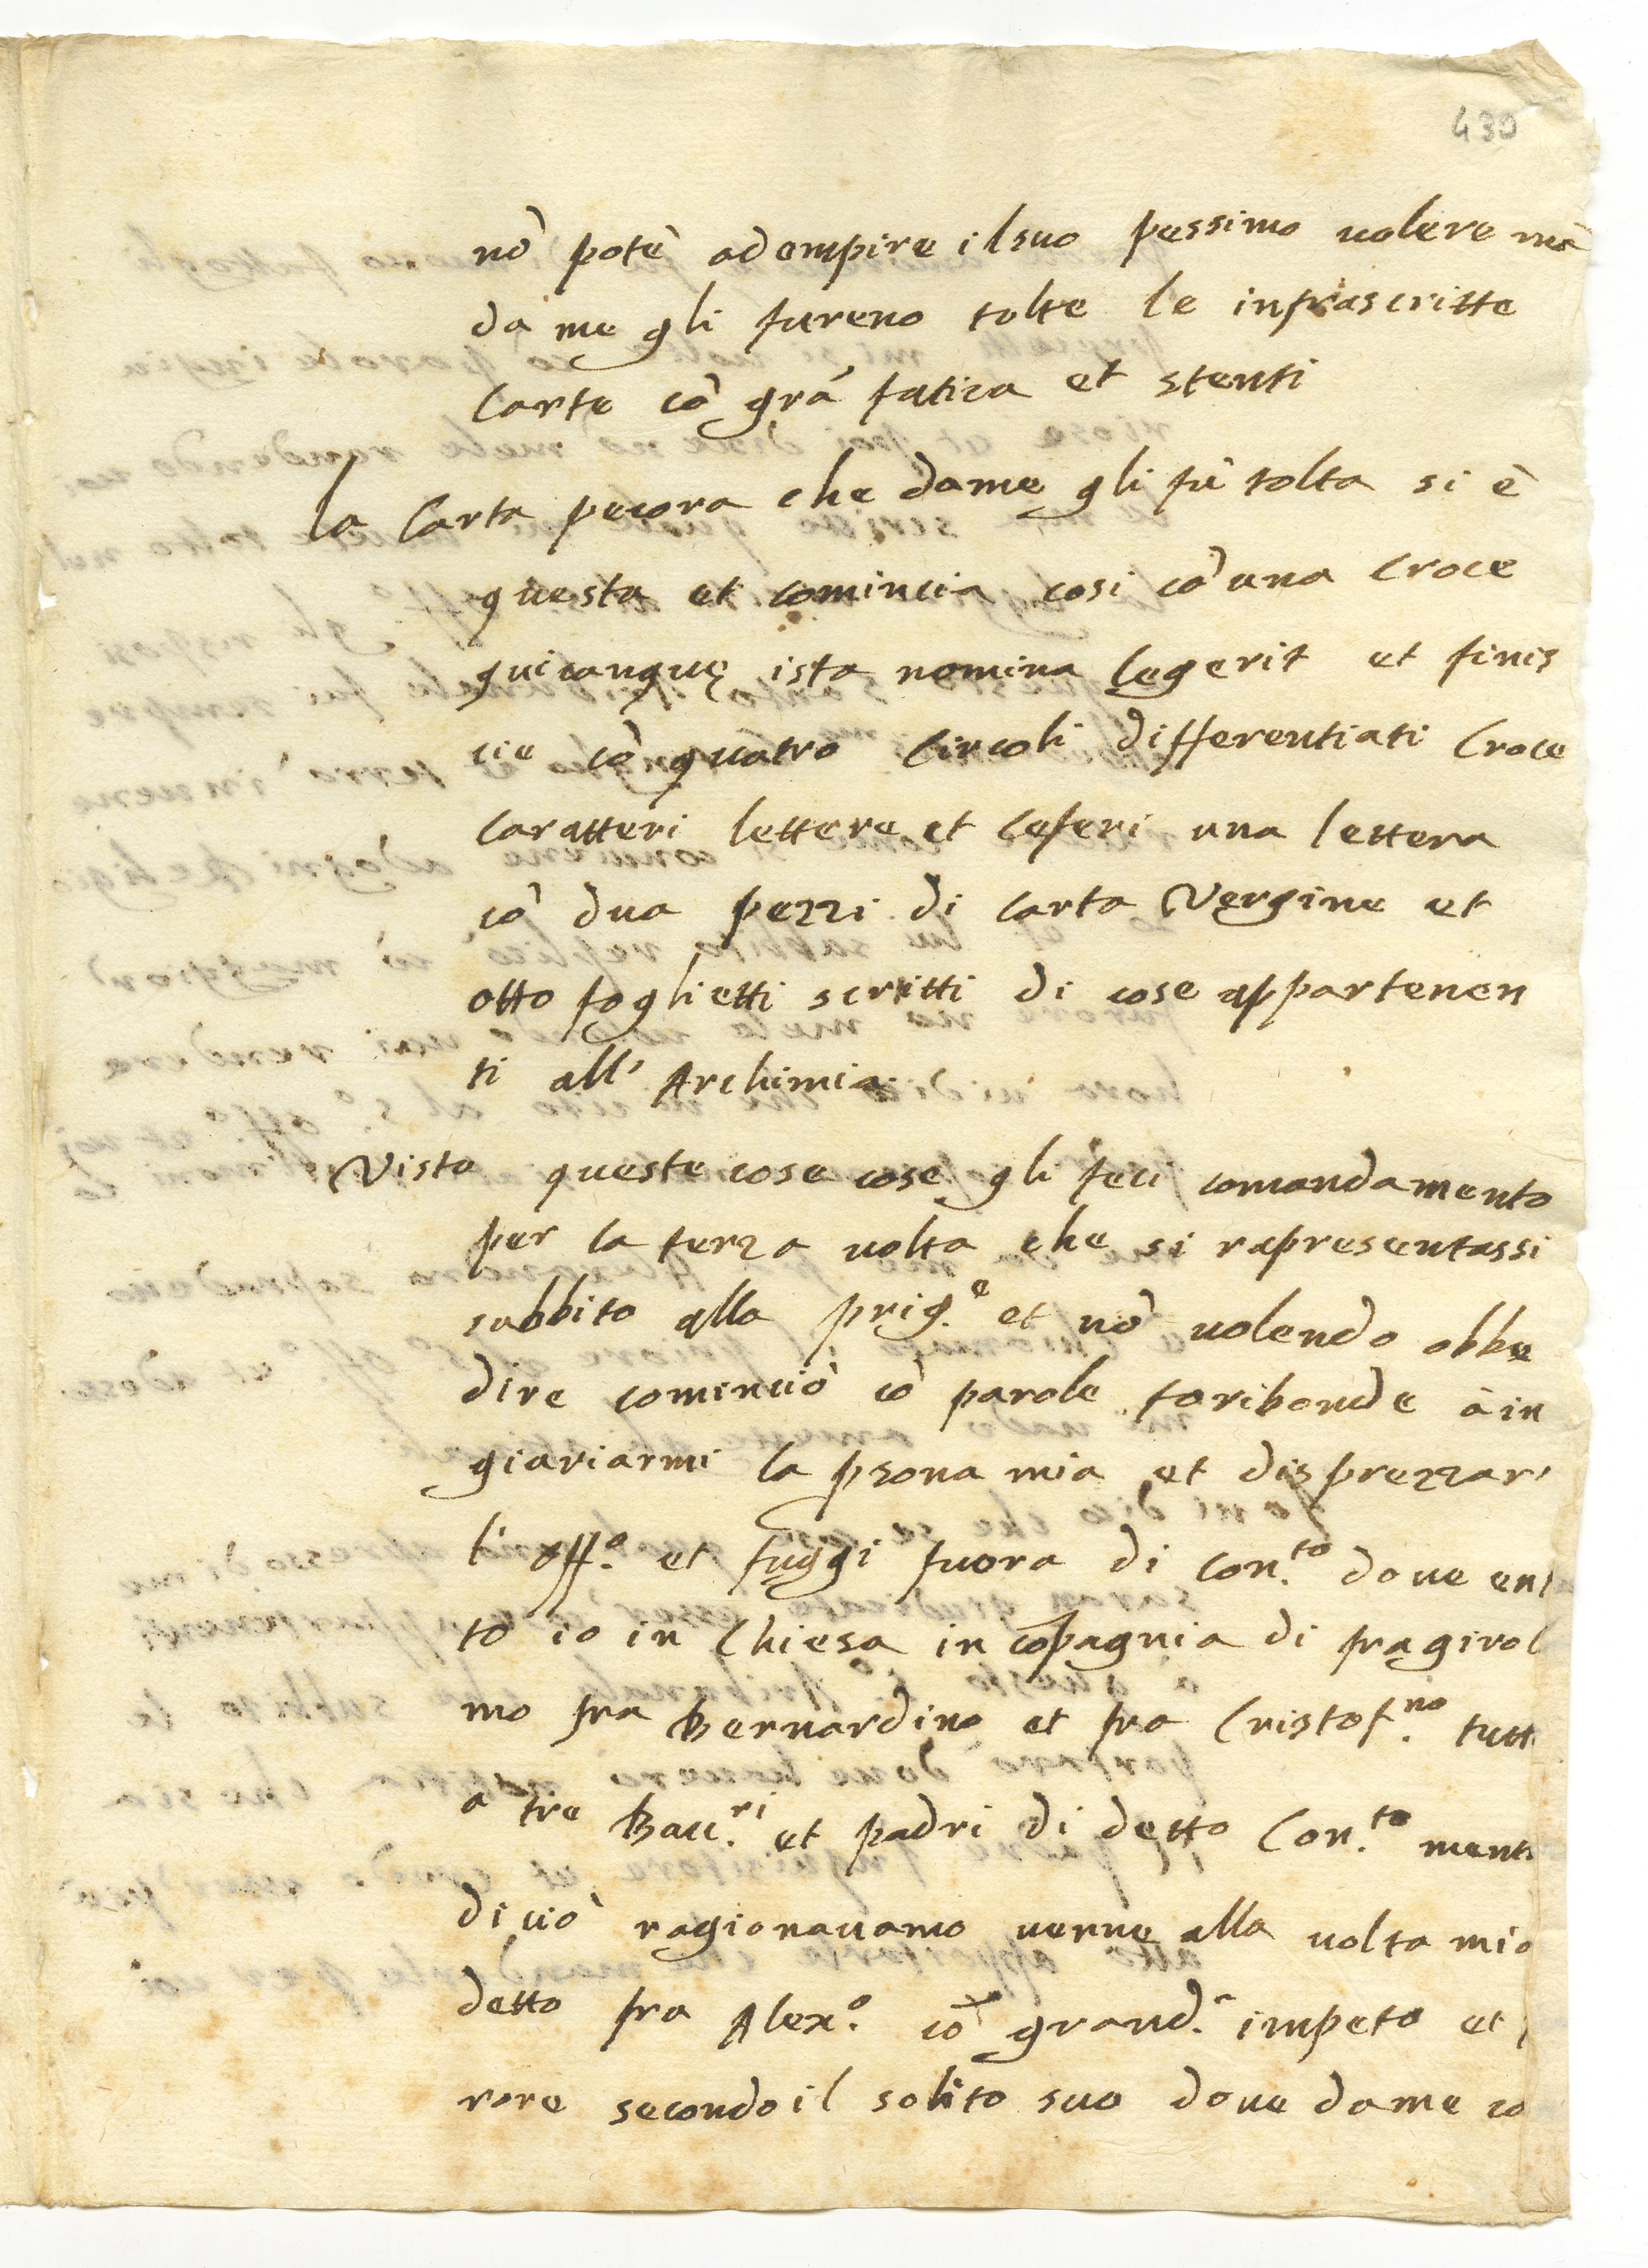 430
nõ potè adempire il suo pessimo uolere mà
da me gli fureno tolte le infrascritte
Carte cõ grã fatica et stenti
La Carta pecora che da me gli fù tolta si è
questa et comincia cosi cõ una Croce
quicunque ista nomina legerit et finis
cie cõ quatro Circoli differentiati Croce
Caratteri lettere et Ceferi una lettera
cõ dua pezzi di Carta Vergine et
otto foglietti scritti di cose appartenen
ti all' Archimia
Viste queste cose cose gli feci comandamento
per la terza uolta che si rapresentassi
subbito alla prig.e et nõ uolendo obbe
dire cominciò cõ parole furibonde à in
giuriarmi la psona mia et disprezzar
l'off.o et fuggi fuora di Con.to doue en
to io in Chiesa in cõpagnia di fra girol
mo fra Bernardino et fra Cristof.no tutt
a tre Bacc.ri et padri di detto Con.to ment
di ciò ragionauamo uenne alla uolta mia
detto fra Alex.o cõ grand. impeto et
rore secondo il solito suo doue da me co